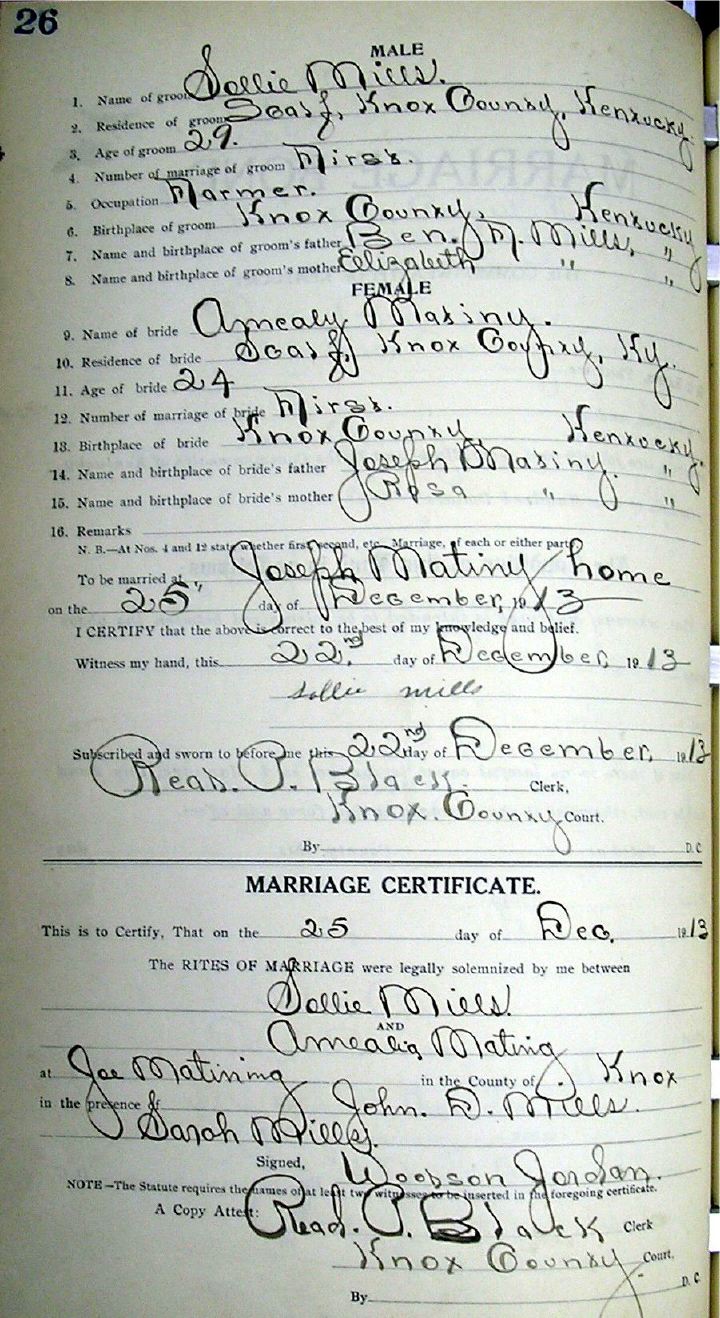 26
MALE
1. Name of groom Sollie Mills.
2. Residence of groom Scalf, Knox County, Kentucky.
3. Age of groom 29.
4. Number of marriage of groom First.
5. Occupation Farmer.
6. Birthplace of groom Knox County, Kentucky
7. Name and birthplace of groom's father Ben. F. Mills, "
8. Name and birthplace of groom's mother Elizabeth " "
FEMALE
9. Name of bride Amealy Matiny.
10. Residence of bride Scalf, Knox County, Ky.
11. Age of bride 24
12. Number of marriage of bride First.
13. Birthplace of bride Knox County, Kentucky.
14. Name and birthplace of bride's father Joseph Matiny. "
15. Name and birthplace of bride's mother Rosa " "
16. Remarks
N. B.—At Nos. 4 and 12 state whether first, second, etc., Marriage, of each or either party.
To be married at Joseph Matiny home
on the 25" day of December, 1913
I CERTIFY that the above is correct to the best of my knowledge and belief.
Witness my hand, this 22nd. day of December, 1913
Sollie mills
Subscribed and sworn to before me this 22nd day of December, 1913
Read. P. Black. Clerk,
Knox. County Court.
By D. C
MARRIAGE CERTIFICATE.
This is to Certify, That on the 25 day of Dec. 1913
The RITES OF MARRIAGE were legally solemnized by me between
Sollie Mills.
AND
Amealia Mating
at Joe Matining in the County of Knox
in the presence of John. D. Mills.
Sarah Mills.
Signed, Woodson Jordan.
NOTE—The Statute requires the names of at least two witnesses to be inserted in the foregoing certificate.
A Copy Attest: Read. P. Black Clerk
Knox County Court.
By D. C